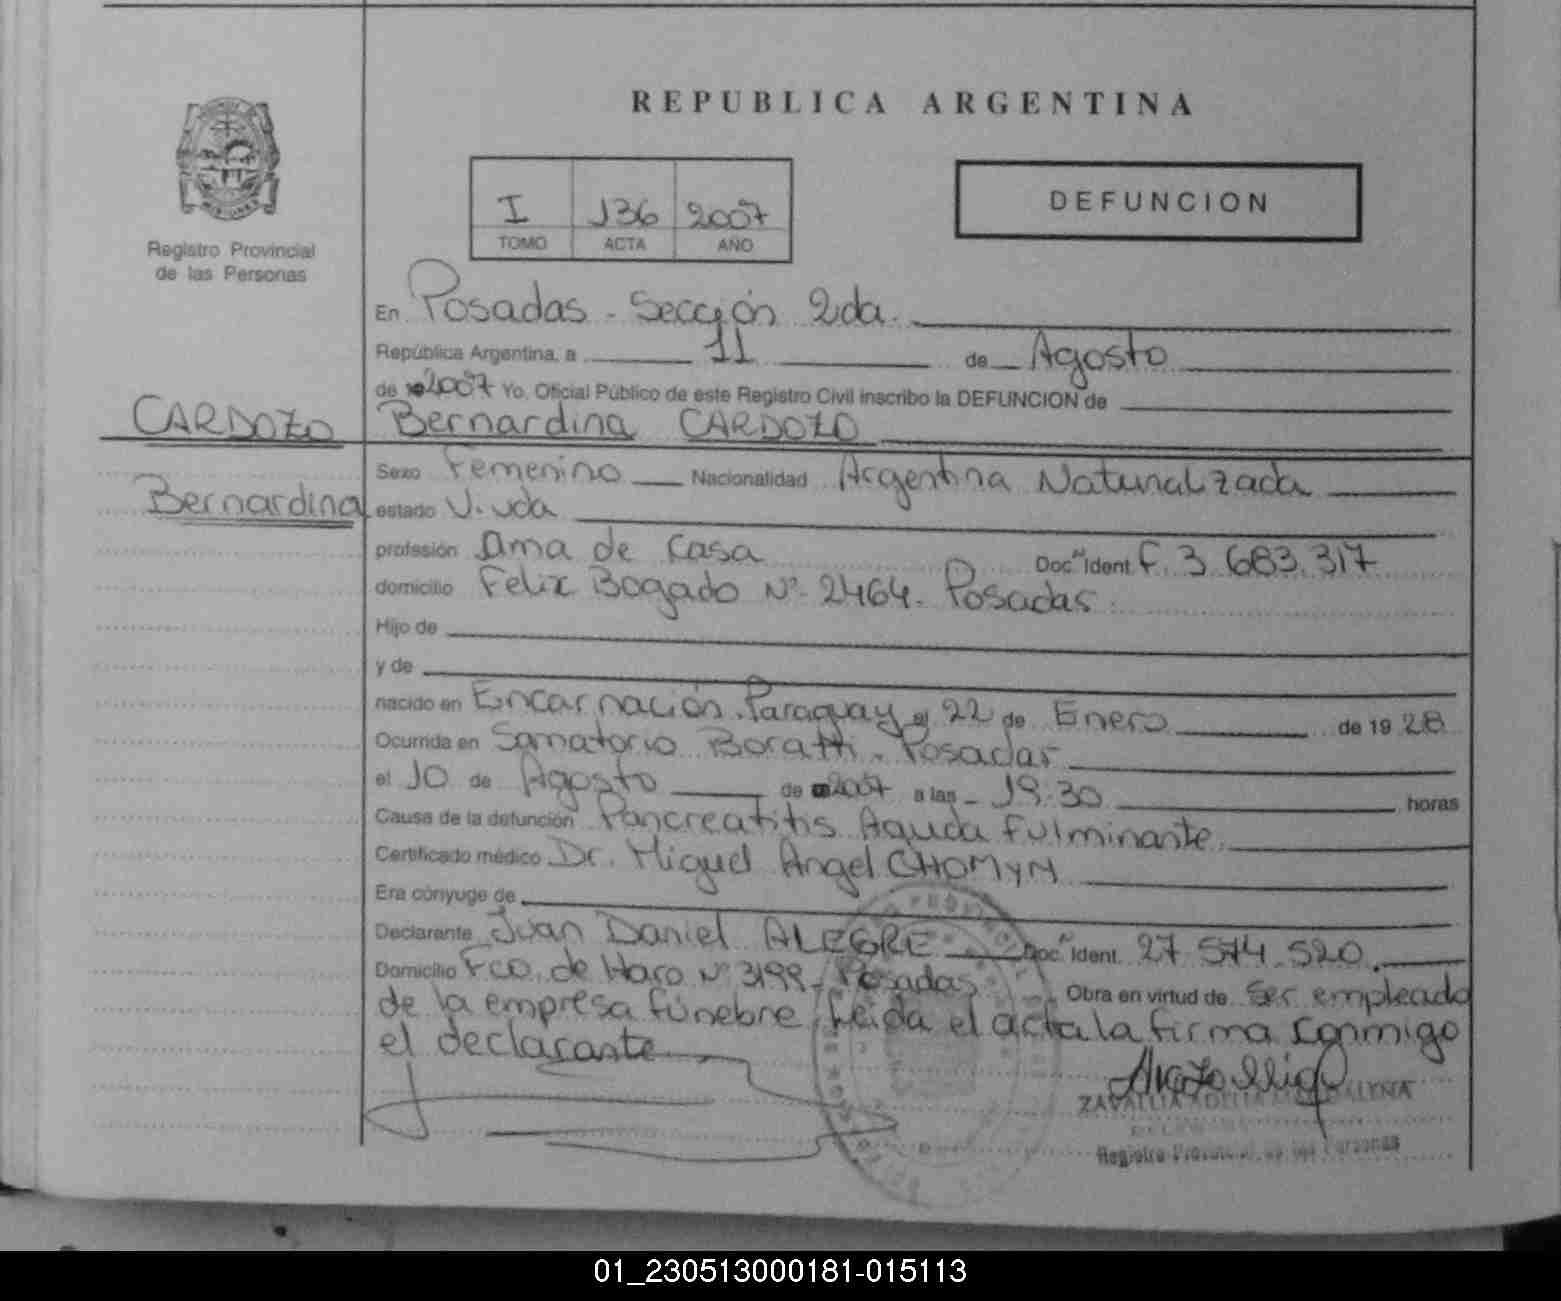 REPUBLICA ARGENTINA
I 136 2007
TOMO ACTA AÑO
DEFUNCION
Registro Provincial
de las Personas
En Posadas - Sección 2da.
República Argentina, a 11 de Agosto
de 2007 Yo, Oficial Público de este Registro Civil inscribo la DEFUNCION de
CARDOZO
Bernardina CARDOZO
Bernardina
Sexo Femenino Nacionalidad Argentina Naturalizada
estado Viuda
profesión Ama de Casa Doc. N° Ident F. 3.683.317
domicilio Felix Bogado N° 2464. Posadas
Hijo de
y de
nacido en Encarnación. Paraguay el 22 de Enero de 1928
Ocurrida en Sanatorio Boratti - Posadas
el 10 de Agosto de 2007 a las 19:30 horas
Causa de la defunción Pancreatitis Aguda fulminante.
Certificado médico Dr. Miguel Angel CHOMYN
Era cónyuge de
Declarante Juan Daniel ALEGRE Doc. N° Ident. 27.574.520.
Domicilio Fco. de Haro N° 3199 - Posadas Obra en virtud de Ser empleado
de la empresa fúnebre, leída el acta la firma conmigo
el declarante
ZAVALLIA ADELIA MAGDALENA
Registro Provincial de las Personas
01_230513000181-015113